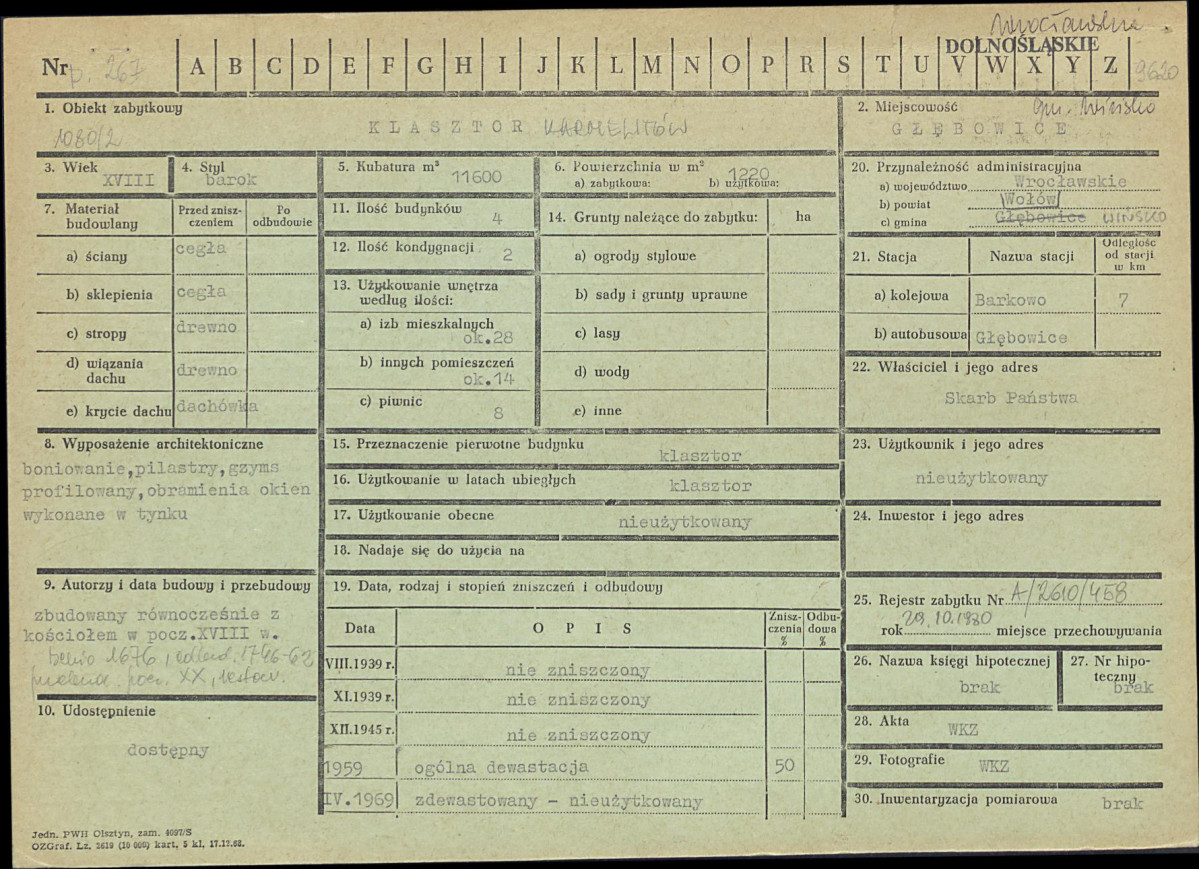 Wrocławskie
DOLNOŚLĄSKIE
Nr p. 267 A B C D E F G H I J K L M N O P R S T U V W X Y Z 9620
1. Obiekt zabytkowy
1080/2
KLASZTOR KARMELITÓW
2. Miejscowość gm. Wińsko
GŁĘBOWICE
3. Wiek
XVIII
4. Styl
barok
5. Kubatura m³
11600
6. Powierzchnia w m²
1220
a) zabytkowa: b) użytkowa:
7. Materiał budowlany
Przed zniszczeniem
Po odbudowie
a) ściany cegła
b) sklepienia cegła
c) stropy drewno
d) wiązania dachu drewno
e) krycie dachu dachówka
8. Wyposażenie architektoniczne
boniowanie,pilastry,gzyms
profilowany,obramienia okien
wykonane w tynku
9. Autorzy i data budowy i przebudowy
zbudowany równocześnie z
kościołem w pocz.XVIII w.
1676, 1746-62
pocz. XX, restaur.
10. Udostępnienie
dostępny
11. Ilość budynków
4
12. Ilość kondygnacji
2
13. Użytkowanie wnętrza
według ilości:
a) izb mieszkalnych
ok.28
b) innych pomieszczeń
ok.14
c) piwnic
8
14. Grunty należące do zabytku: ha
a) ogrody stylowe
b) sady i grunty uprawne
c) lasy
d) wody
e) inne
15. Przeznaczenie pierwotne budynku
klasztor
16. Użytkowanie w latach ubiegłych
klasztor
17. Użytkowanie obecne
nieużytkowany
18. Nadaje się do użycia na
19. Data, rodzaj i stopień zniszczeń i odbudowy
Data OPIS Zniszczenia % Odbudowa %
VIII.1939 r. nie zniszczony
XI.1939 r. nie zniszczony
XII.1945 r. nie zniszczony
1959 ogólna dewastacja 50
IV.1969 zdewastowany - nieużytkowany
20. Przynależność administracyjna
a) województwo Wrocławskie
b) powiat Wołów
c) gmina Głębowice WIŃSKO
21. Stacja Nazwa stacji Odległość od stacji w km
a) kolejowa Barkowo 7
b) autobusowa Głębowice
22. Właściciel i jego adres
Skarb Państwa
23. Użytkownik i jego adres
nieużytkowany
24. Inwestor i jego adres
25. Rejestr zabytku Nr A/2610/458
rok 29.10.1980 miejsce przechowywania
26. Nazwa księgi hipotecznej
brak
27. Nr hipoteczny
brak
28. Akta
WKZ
29. Fotografie
WKZ
30. Inwentaryzacja pomiarowa brak
Jedn. PWH Olsztyn, zam. 4697/S
OZGraf. Lz. 2619 (10 000) kart. 5 kl. 17.12.68.